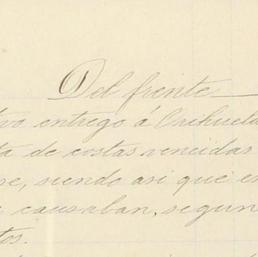 Del frente
vo entregó á Orihuela
ta de costas vencidas
re, siendo asi que en
causaban, segun
tos.